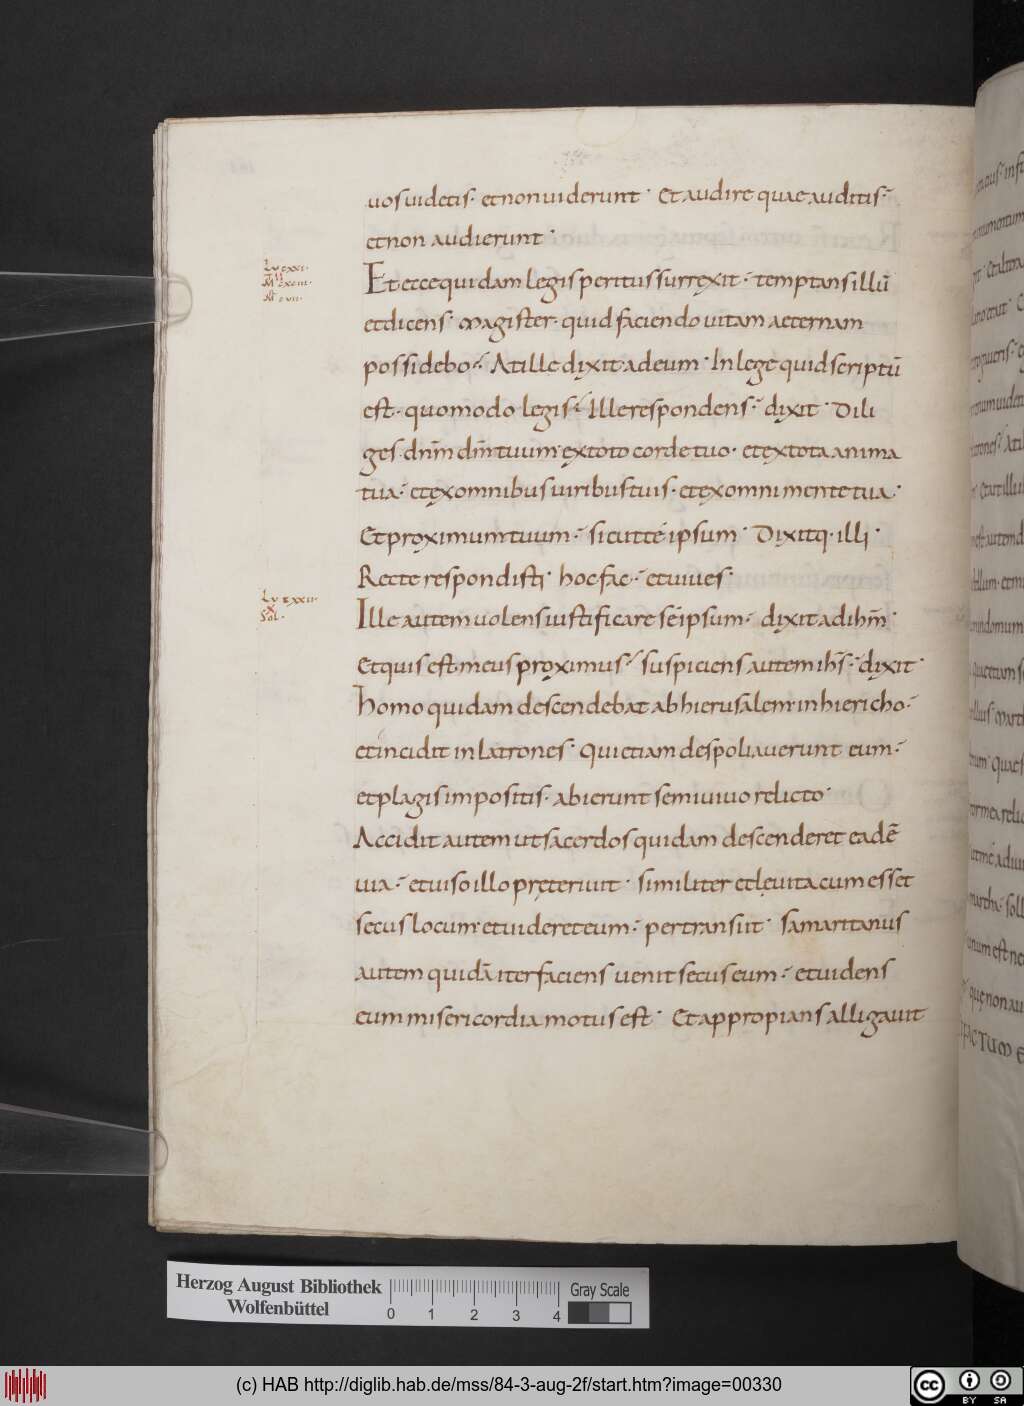 uos uidetis· et non uiderunt· Et audire quae auditis·
et non audierunt·
Lu cxxi·
II
Mt cxciii·
Et ecce quidam legisperitus surrexit· temptans illū
et dicens· magister· quid faciendo uitam aeternam
possidebo· At ille dixit ad eum· In lege quid scriptū
est· quomodo legis· Ille respondens· dixit· Dili
ges dn̄m dm̄ tuum· ex toto corde tuo· et ex tota anima
tua· et ex omnibus uiribus tuis· et ex omni mente tua·
Et proximum tuum· sicut te ipsum· Dixitq· illi·
Recte respondisti· hoc fac· et uiues·
Lu cxxii·
X
Sol·
Ille autem uolens iustificare seipsum· dixit ad ihm̄·
Et quis est meus proximus· Suspiciens autem ihs̄· dixit·
Homo quidam descendebat ab hierusalem· in hiericho·
et incidit in latrones· Qui etiam despoliauerunt eum·
et plagis impositis· abierunt semiuiuo relicto·
Accidit autem ut sacerdos quidam descenderet eadē
uia· et uiso illo pręteriuit· similiter et leuita cum esset
secus locum· et uideret eum· pertransiit· Samaritanus
autem quidā iter faciens uenit secus eum· et uidens
eum misericordia motus est· Et appropians alligauit
Herzog August Bibliothek
Wolfenbüttel
0 1 2 3 4
Gray Scale
(c) HAB http://diglib.hab.de/mss/84-3-aug-2f/start.htm?image=00330
cc BY SA